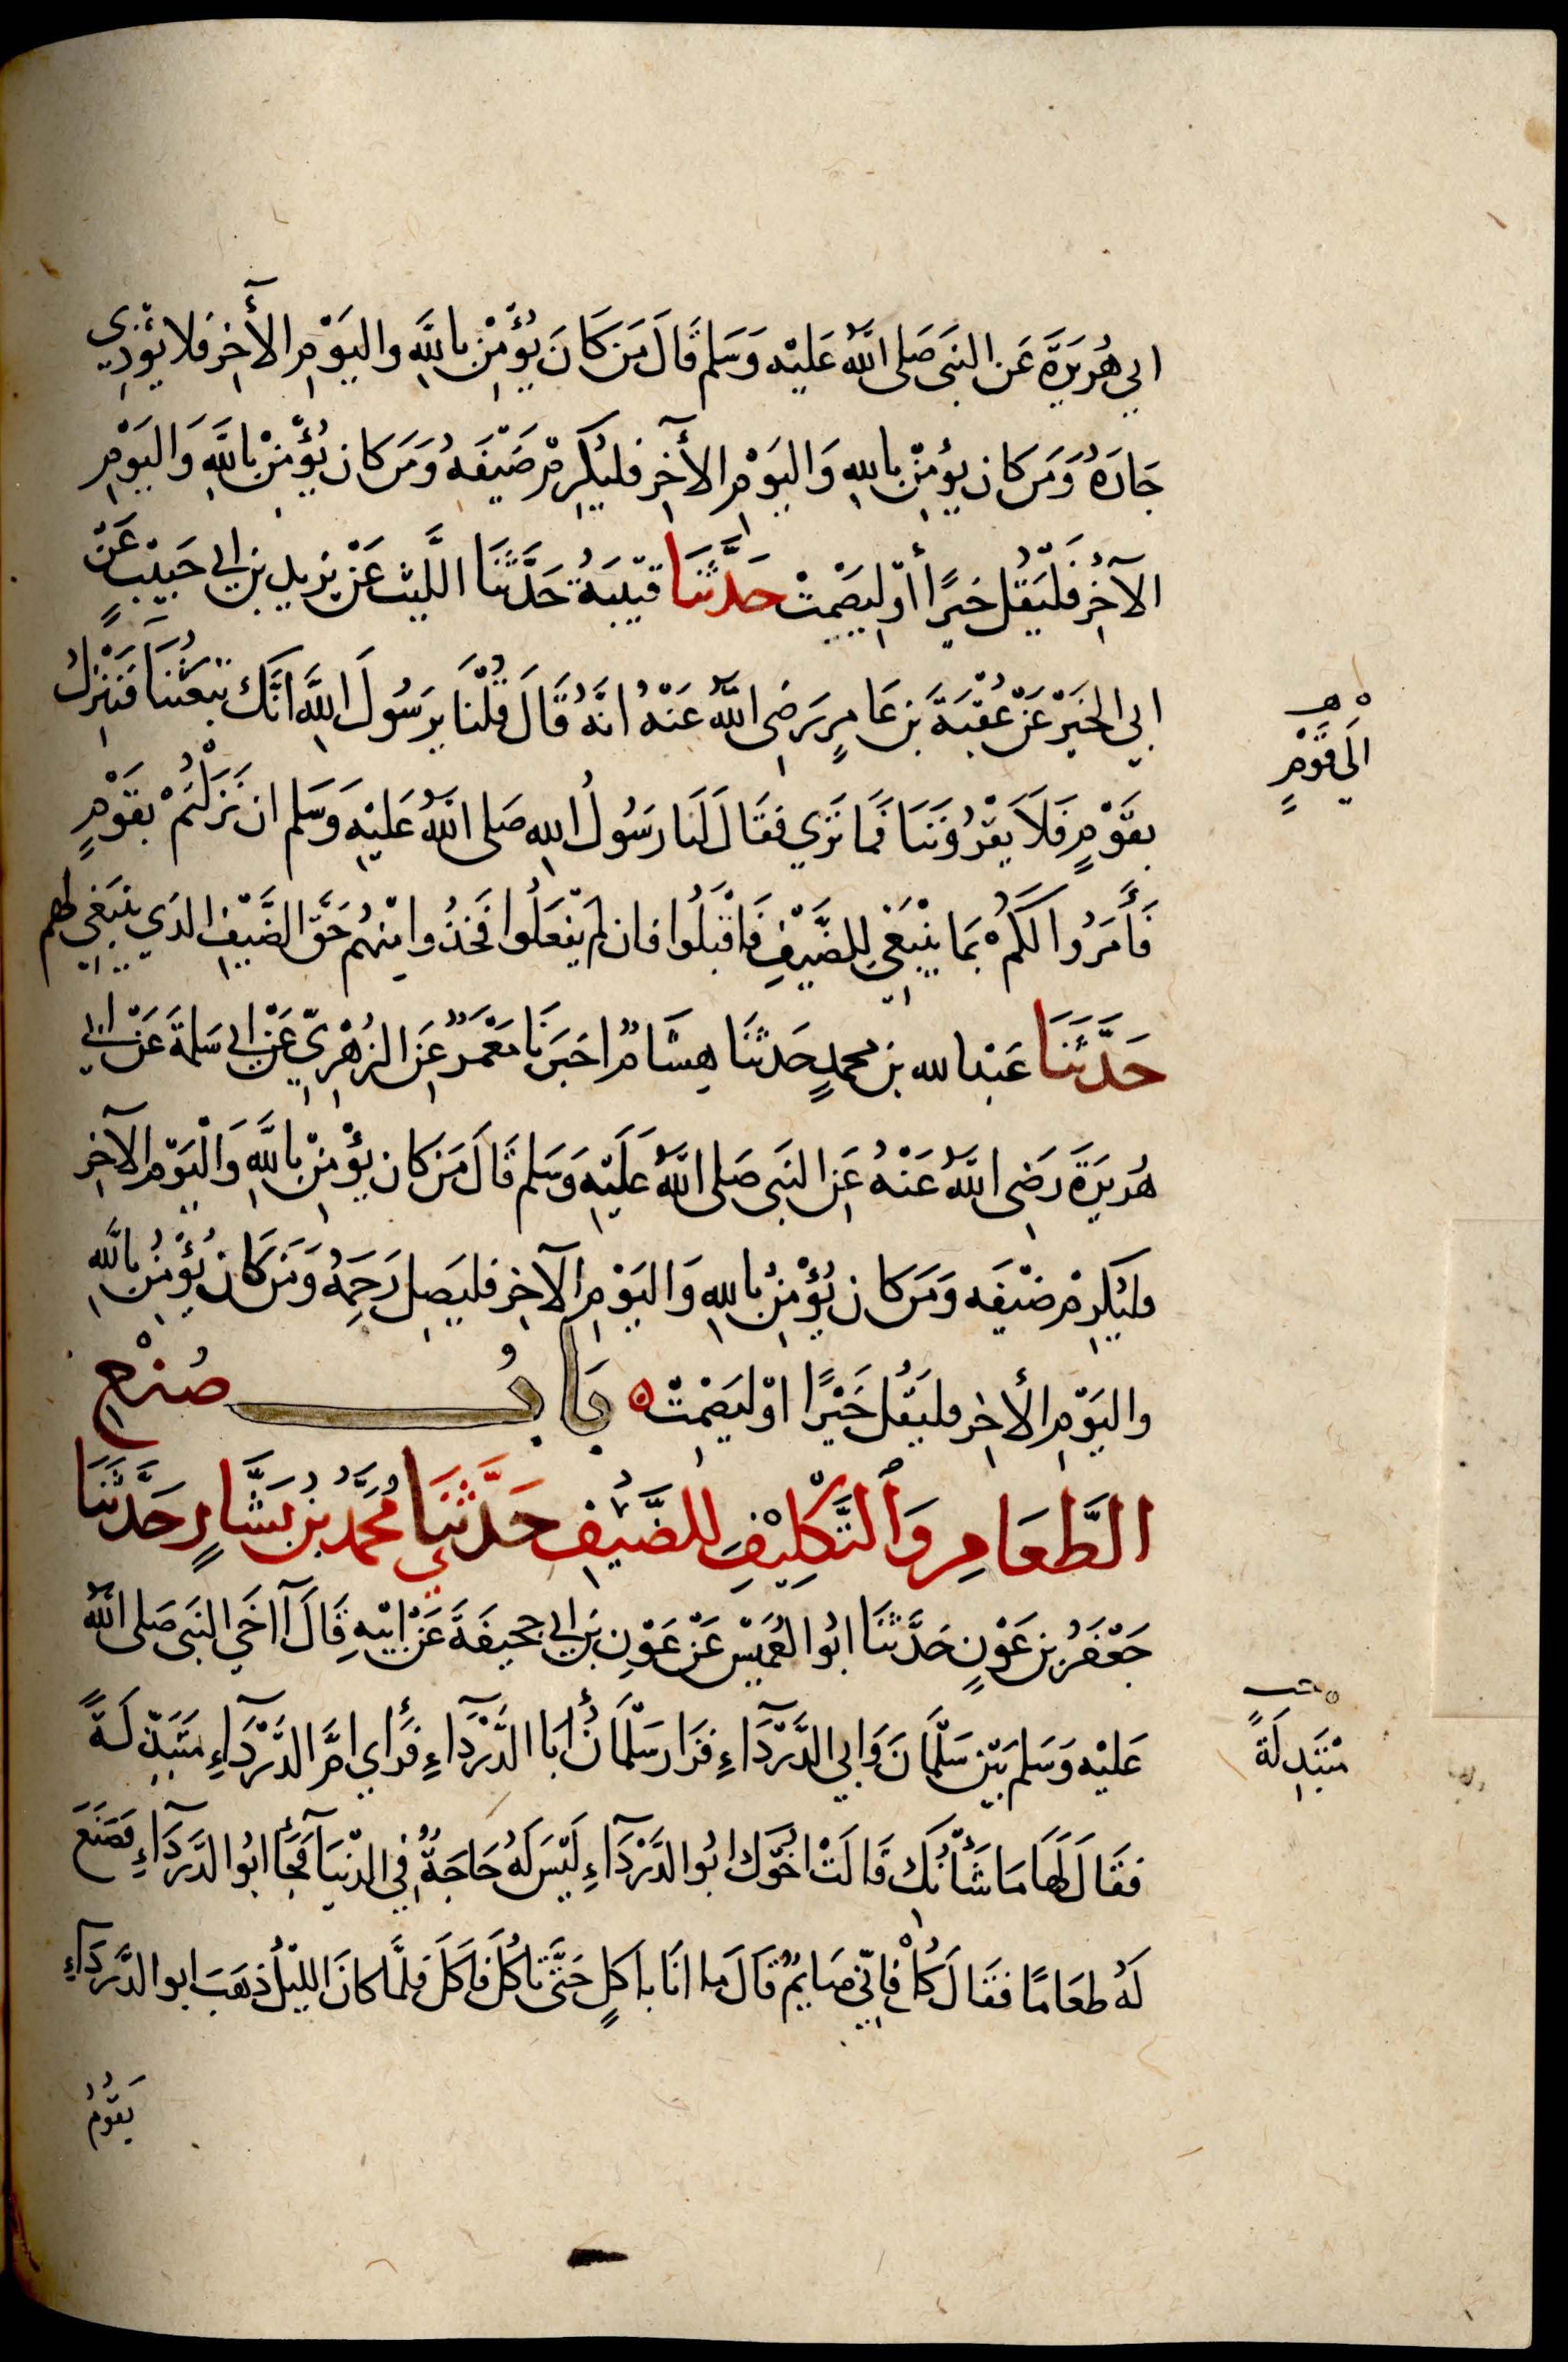 ابي هُرَيرَةَ عَن النبَي صَلى اللهُ عَليْه وَسَلم قَالَ مَن كَانَ يُؤْمِنُ باللهِ واليَوْمِ الأخِرِ فَلا يؤذِي
جَارَهُ وَمَن كان يؤمِنُ باللهِ وَاليَوْمِ الأخِر فليُكرِمْ ضَيْفَهُ وَمَن كان يُؤْمِنُ باللهِ وَاليَوْمِ
الآخِرِ فَليَقُل خَيرًا أوْ ليَصْمِتْ حَدَّثَنَا قتَيبَةُ حَدَّثَنَا الليْث عَنْ يَزيدِ بن ابي حَبيْبٍ عَنْ
ابي الخَيْرِ عَنْ عُقْبَةَ بن عَامِرٍ رَضِي اللهُ عَنْهُ انَّهُ قَالَ قُلْنَا يَرَسُولَ اللهِ انَّكَ تبْعَثُنَا فَنَنْزِلُ
بقَوْمٍ فَلاَ يَقْرُوْنَنَا فَمَا تَرَي فقَالَ لَنَا رَسُولُ اللهِ صَلى اللهُ عَليْهِ وَسَلم ان نَزَلْتُمْ بقَوْمٍ
فَأَمَرُوا لَكُمْ بمَا يَنْبَغِي للِضَّيْفِ فَاقْبَلُوا فان لم يَفعَلُوا فَخذُوا مِنْهُم حَقَّ الضَّيْفِ الذي يَنْبَغِي لهم
حَدَّثَنَا عَبْدالله بن محمدٍ حَدثنَا هِشَامٌ اخبَرَنَا مَعْمَرٌ عَنِ الزُهْرِيِّ عَنْ ابي سَلمَةَ عَنْ ابي
هُرَيرَةَ رَضِي اللهُ عَنْهُ عَنِ النبَي صَلى اللهُ عَليْهِ وَسَلم قَالَ مَن كان يؤْمِنُ باللهِ وَاليَوْمِ الآخِرِ
فليُكرِمْ ضَيْفَه وَمَن كان يُؤْمِنُ باللهِ وَاليَوْمِ الآخِرِ فليَصِل رَحِمَهُ وَمَن كان يُؤْمِنُ باللهِ
واليَوْمِ الأخِر فليَقُل خَيْرًا اوْ ليَصْمِتْ ٥ بَابُ صُنْعِ
الطَّعَامِ وَالتَّكلِيْفِ للضَّيْفِ حَدَّثَنَيِ مُحَمَّدُ بْنُ بَشَّارٍ حَدَّثَنَا
جَعْفَرُ بن عَوْنٍ حَدَّثَنَا ابُوا لعُمَيْسِ عَنْ عَوْنِ بن ابي جحيفَةَ عَنْ ابيْهِ قَالَ آاخَي النبَي صَلى اللهُ
عَليْه وَسَلم بَيْن سَلْمَانَ وَابي الدَّرْدَآءِ فزَارَ سَلْمَانُ أبَا الدَّرْدَآءِ فرَأي امَّ الدَّرْدَآءِ مُتَبَذِّلَةً
فقَالَ لَهَا مَا شَأْنُكِ قَالَتْ اخُوْكَ ابُوالدَّرْدَآءِ لَيْسَ لَهُ حَاجَةٌ فِي الدنْيَا فجَآءَ ابُوا لدَّرْدَآءِ فصَنَعَ
لَهُ طعَامًا فقَالَ كُلْ فاِنِّي صَايمٌ قَالَ مَا انَا باَكلٍ حَتَّى تَاكُلَ فَاكَلَ فَلمَّا كانَ الليْلُ ذهَبَ ابوا لدَّرْدَآءِ
يَقُومُ
٥ هـ
الَي قَوْمٍ
مُتَبَذلَةً